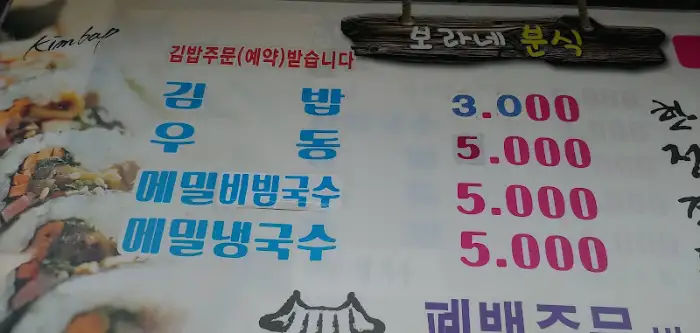 Kimbap
보라네 분식
김밥주문(예약)받습니다
김 밥 3.000
우 동 5.000
메밀비빔국수 5.000
메밀냉국수 5.000
폐백주문